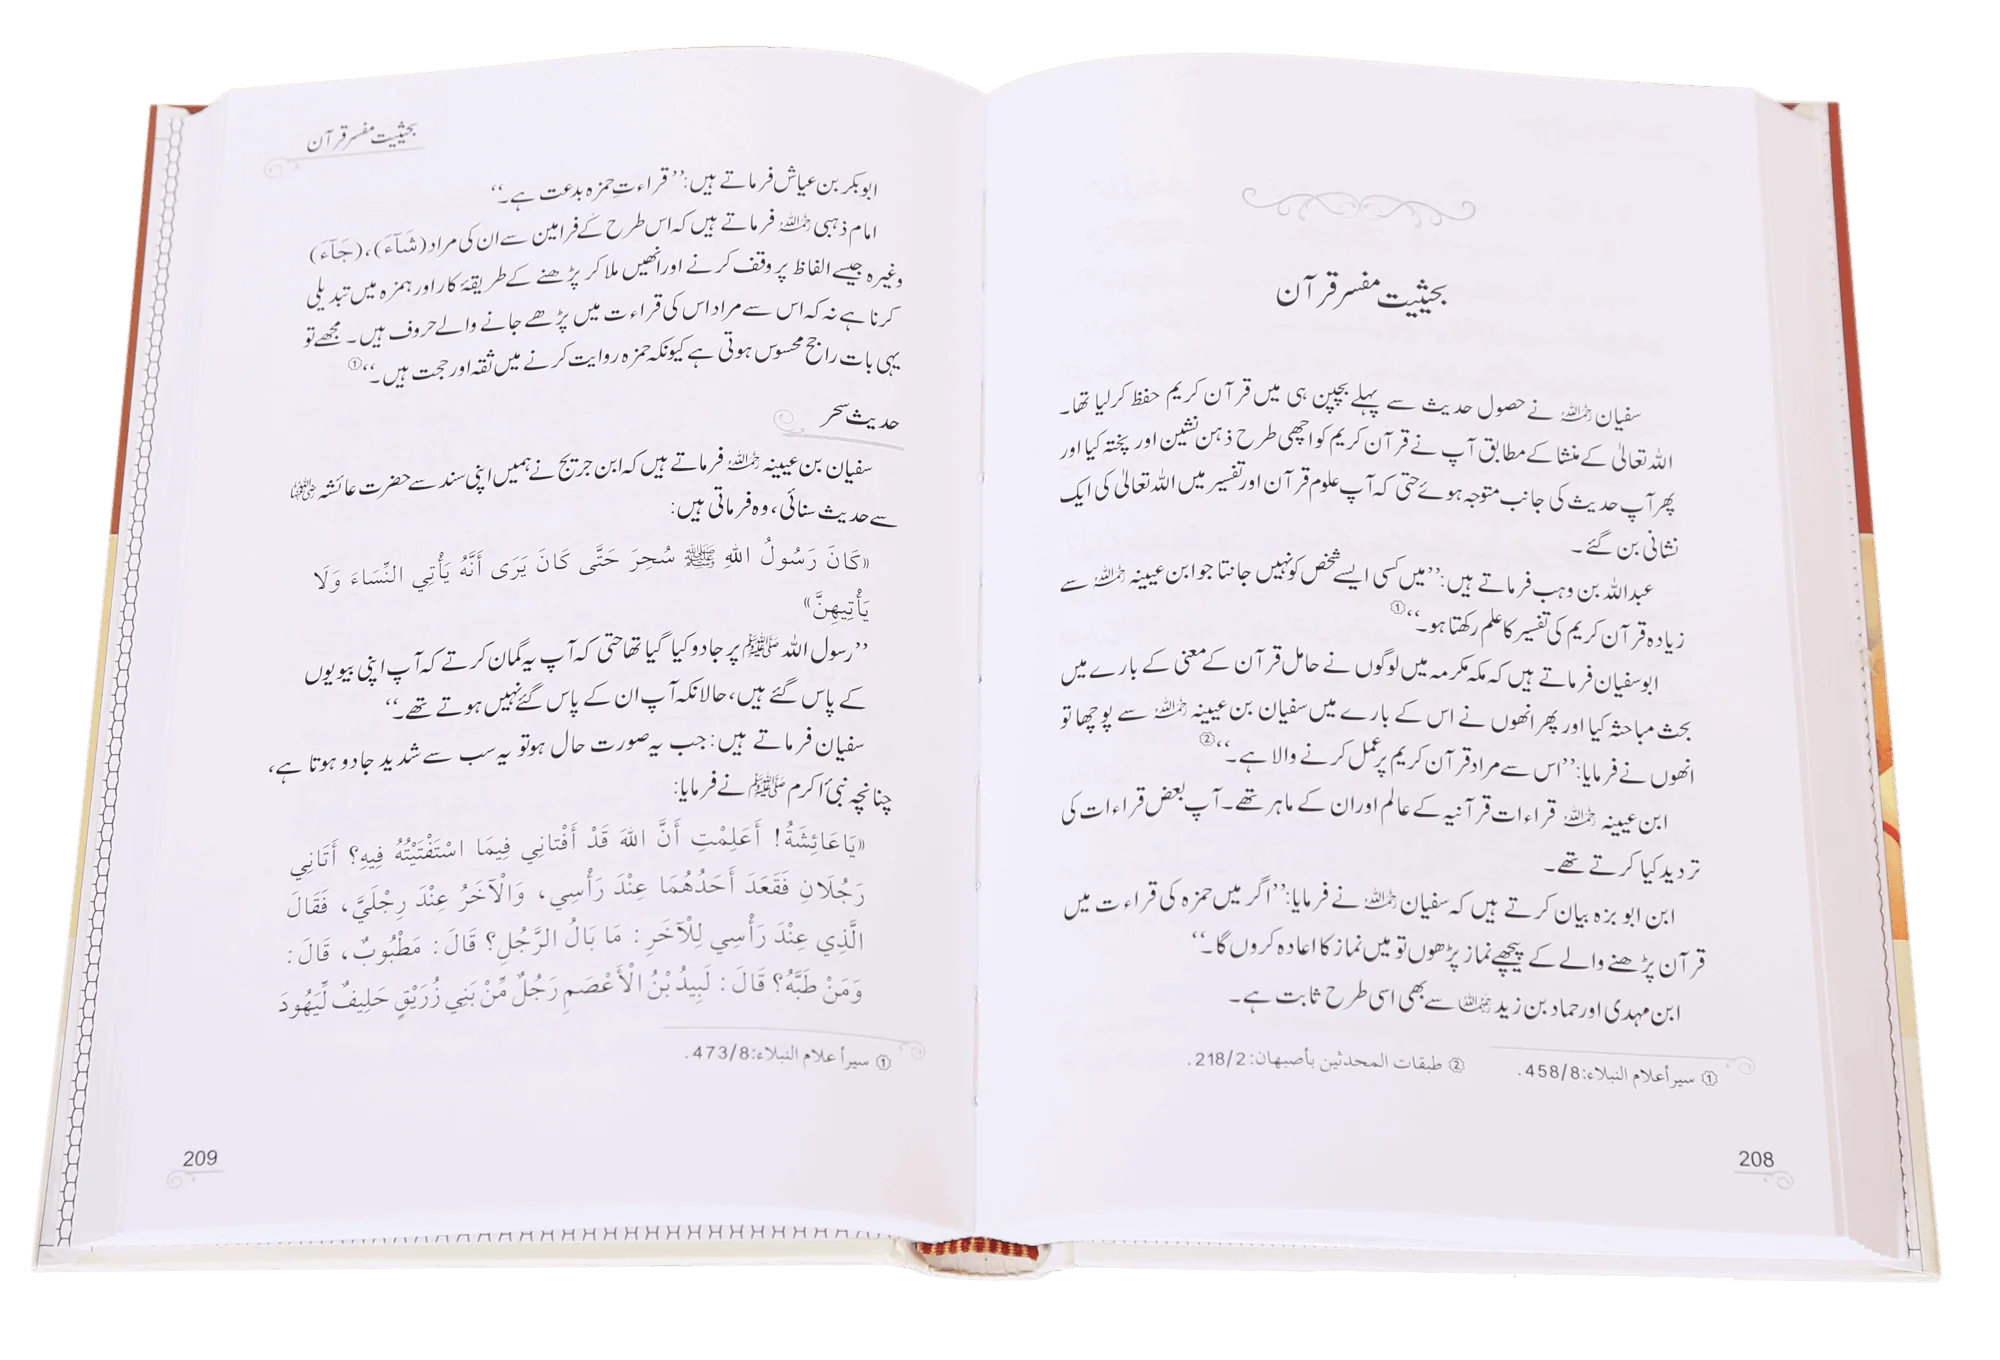 بحیثیت مفسر قرآن
سفیان رحمہ اللہ نے حصول حدیث سے پہلے بچپن ہی میں قرآن کریم حفظ کرلیا تھا۔
اللہ تعالیٰ کے منشا کے مطابق آپ نے قرآن کریم کو اچھی طرح ذہن نشین اور پختہ کیا اور
پھر آپ حدیث کی جانب متوجہ ہوئے حتی کہ آپ علوم قرآن اور تفسیر میں اللہ تعالیٰ کی ایک
نشانی بن گئے۔
عبداللہ بن وہب فرماتے ہیں: ’’میں کسی ایسے شخص کو نہیں جانتا جو ابن عیینہ رحمہ اللہ سے
زیادہ قرآن کریم کی تفسیر کا علم رکھتا ہو۔‘‘①
ابوسفیان فرماتے ہیں کہ مکہ مکرمہ میں لوگوں نے حامل قرآن کے معنی کے بارے میں
بحث مباحثہ کیا اور پھر انھوں نے اس کے بارے میں سفیان بن عیینہ رحمہ اللہ سے پوچھا تو
انھوں نے فرمایا: ’’اس سے مراد قرآن کریم پر عمل کرنے والا ہے۔‘‘②
ابن عیینہ رحمہ اللہ قراءات قرآنیہ کے عالم اور ان کے ماہر تھے۔ آپ بعض قراءات کی
تردید کیا کرتے تھے۔
ابن ابو بزہ بیان کرتے ہیں کہ سفیان رحمہ اللہ نے فرمایا: ’’اگر میں حمزہ کی قراءت میں
قرآن پڑھنے والے کے پیچھے نماز پڑھوں تو میں نماز کا اعادہ کروں گا۔‘‘
ابن مہدی اور حماد بن زید رحمہما اللہ سے بھی اسی طرح ثابت ہے۔
① سير أعلام النبلاء: 458/8. ② طبقات المحدثين بأصبهان: 218/2.
208
بحیثیت مفسر قرآن
ابوبکر بن عیاش فرماتے ہیں: ’’قراءتِ حمزہ بدعت ہے۔‘‘
امام ذہبی رحمہ اللہ فرماتے ہیں کہ اس طرح کے فرامین سے ان کی مراد (شَآءَ)، (جَآءَ)
وغیرہ جیسے الفاظ پر وقف کرنے اور انھیں ملا کر پڑھنے کے طریقۂ کار اور ہمزہ میں تبدیلی
کرنا ہے نہ کہ اس سے مراد اس کی قراءت میں پڑھے جانے والے حروف ہیں۔ مجھے تو
یہی بات راجح محسوس ہوتی ہے کیونکہ حمزہ روایت کرنے میں ثقہ اور حجت ہیں۔‘‘①
حدیث سحر
سفیان بن عیینہ رحمہ اللہ فرماتے ہیں کہ ابن جریج نے ہمیں اپنی سند سے حضرت عائشہ رضی اللہ عنہا
سے حدیث سنائی، وہ فرماتی ہیں:
«كَانَ رَسُولُ اللهِ ﷺ سُحِرَ حَتَّى كَانَ يَرَى أَنَّهُ يَأْتِي النِّسَاءَ وَلَا
يَأْتِيهِنَّ»
’’رسول اللہ ﷺ پر جادو کیا گیا تھا حتی کہ آپ یہ گمان کرتے کہ آپ اپنی بیویوں
کے پاس گئے ہیں، حالانکہ آپ ان کے پاس گئے نہیں ہوتے تھے۔‘‘
سفیان فرماتے ہیں: جب یہ صورت حال ہو تو یہ سب سے شدید جادو ہوتا ہے،
چنانچہ نبیٔ اکرم ﷺ نے فرمایا:
«يَاعَائِشَةُ! أَعَلِمْتِ أَنَّ اللهَ قَدْ أَفْتَانِي فِيمَا اسْتَفْتَيْتُهُ فِيهِ؟ أَتَانِي
رَجُلَانِ فَقَعَدَ أَحَدُهُمَا عِنْدَ رَأْسِي، وَالْآخَرُ عِنْدَ رِجْلَيَّ، فَقَالَ
الَّذِي عِنْدَ رَأْسِي لِلْآخَرِ: مَا بَالُ الرَّجُلِ؟ قَالَ: مَطْبُوبٌ، قَالَ:
وَمَنْ طَبَّهُ؟ قَالَ: لَبِيدُ بْنُ الْأَعْصَمِ رَجُلٌ مِّنْ بَنِي زُرَيْقٍ حَلِيفٌ لِّيَهُودَ
① سير أعلام النبلاء: 473/8.
209